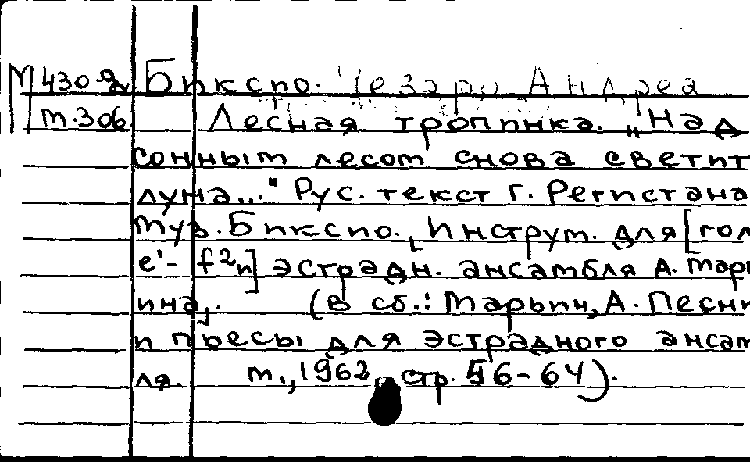 М 430-2 Бпкспо. Чезаре Андреа
м.306 Лесная тропинка. „Над
сонным лесом снова светит
луна..." Рус. текст Г. Регистана
муз. Биксио., [Инструм. для [гол
e'- f²и] эстрадн. ансамбля А. Марь
ина]. (в сб.: Марьин, А. Песни
и пьесы для эстрадного ансам
ля. м., 1962, стр. 56-64).